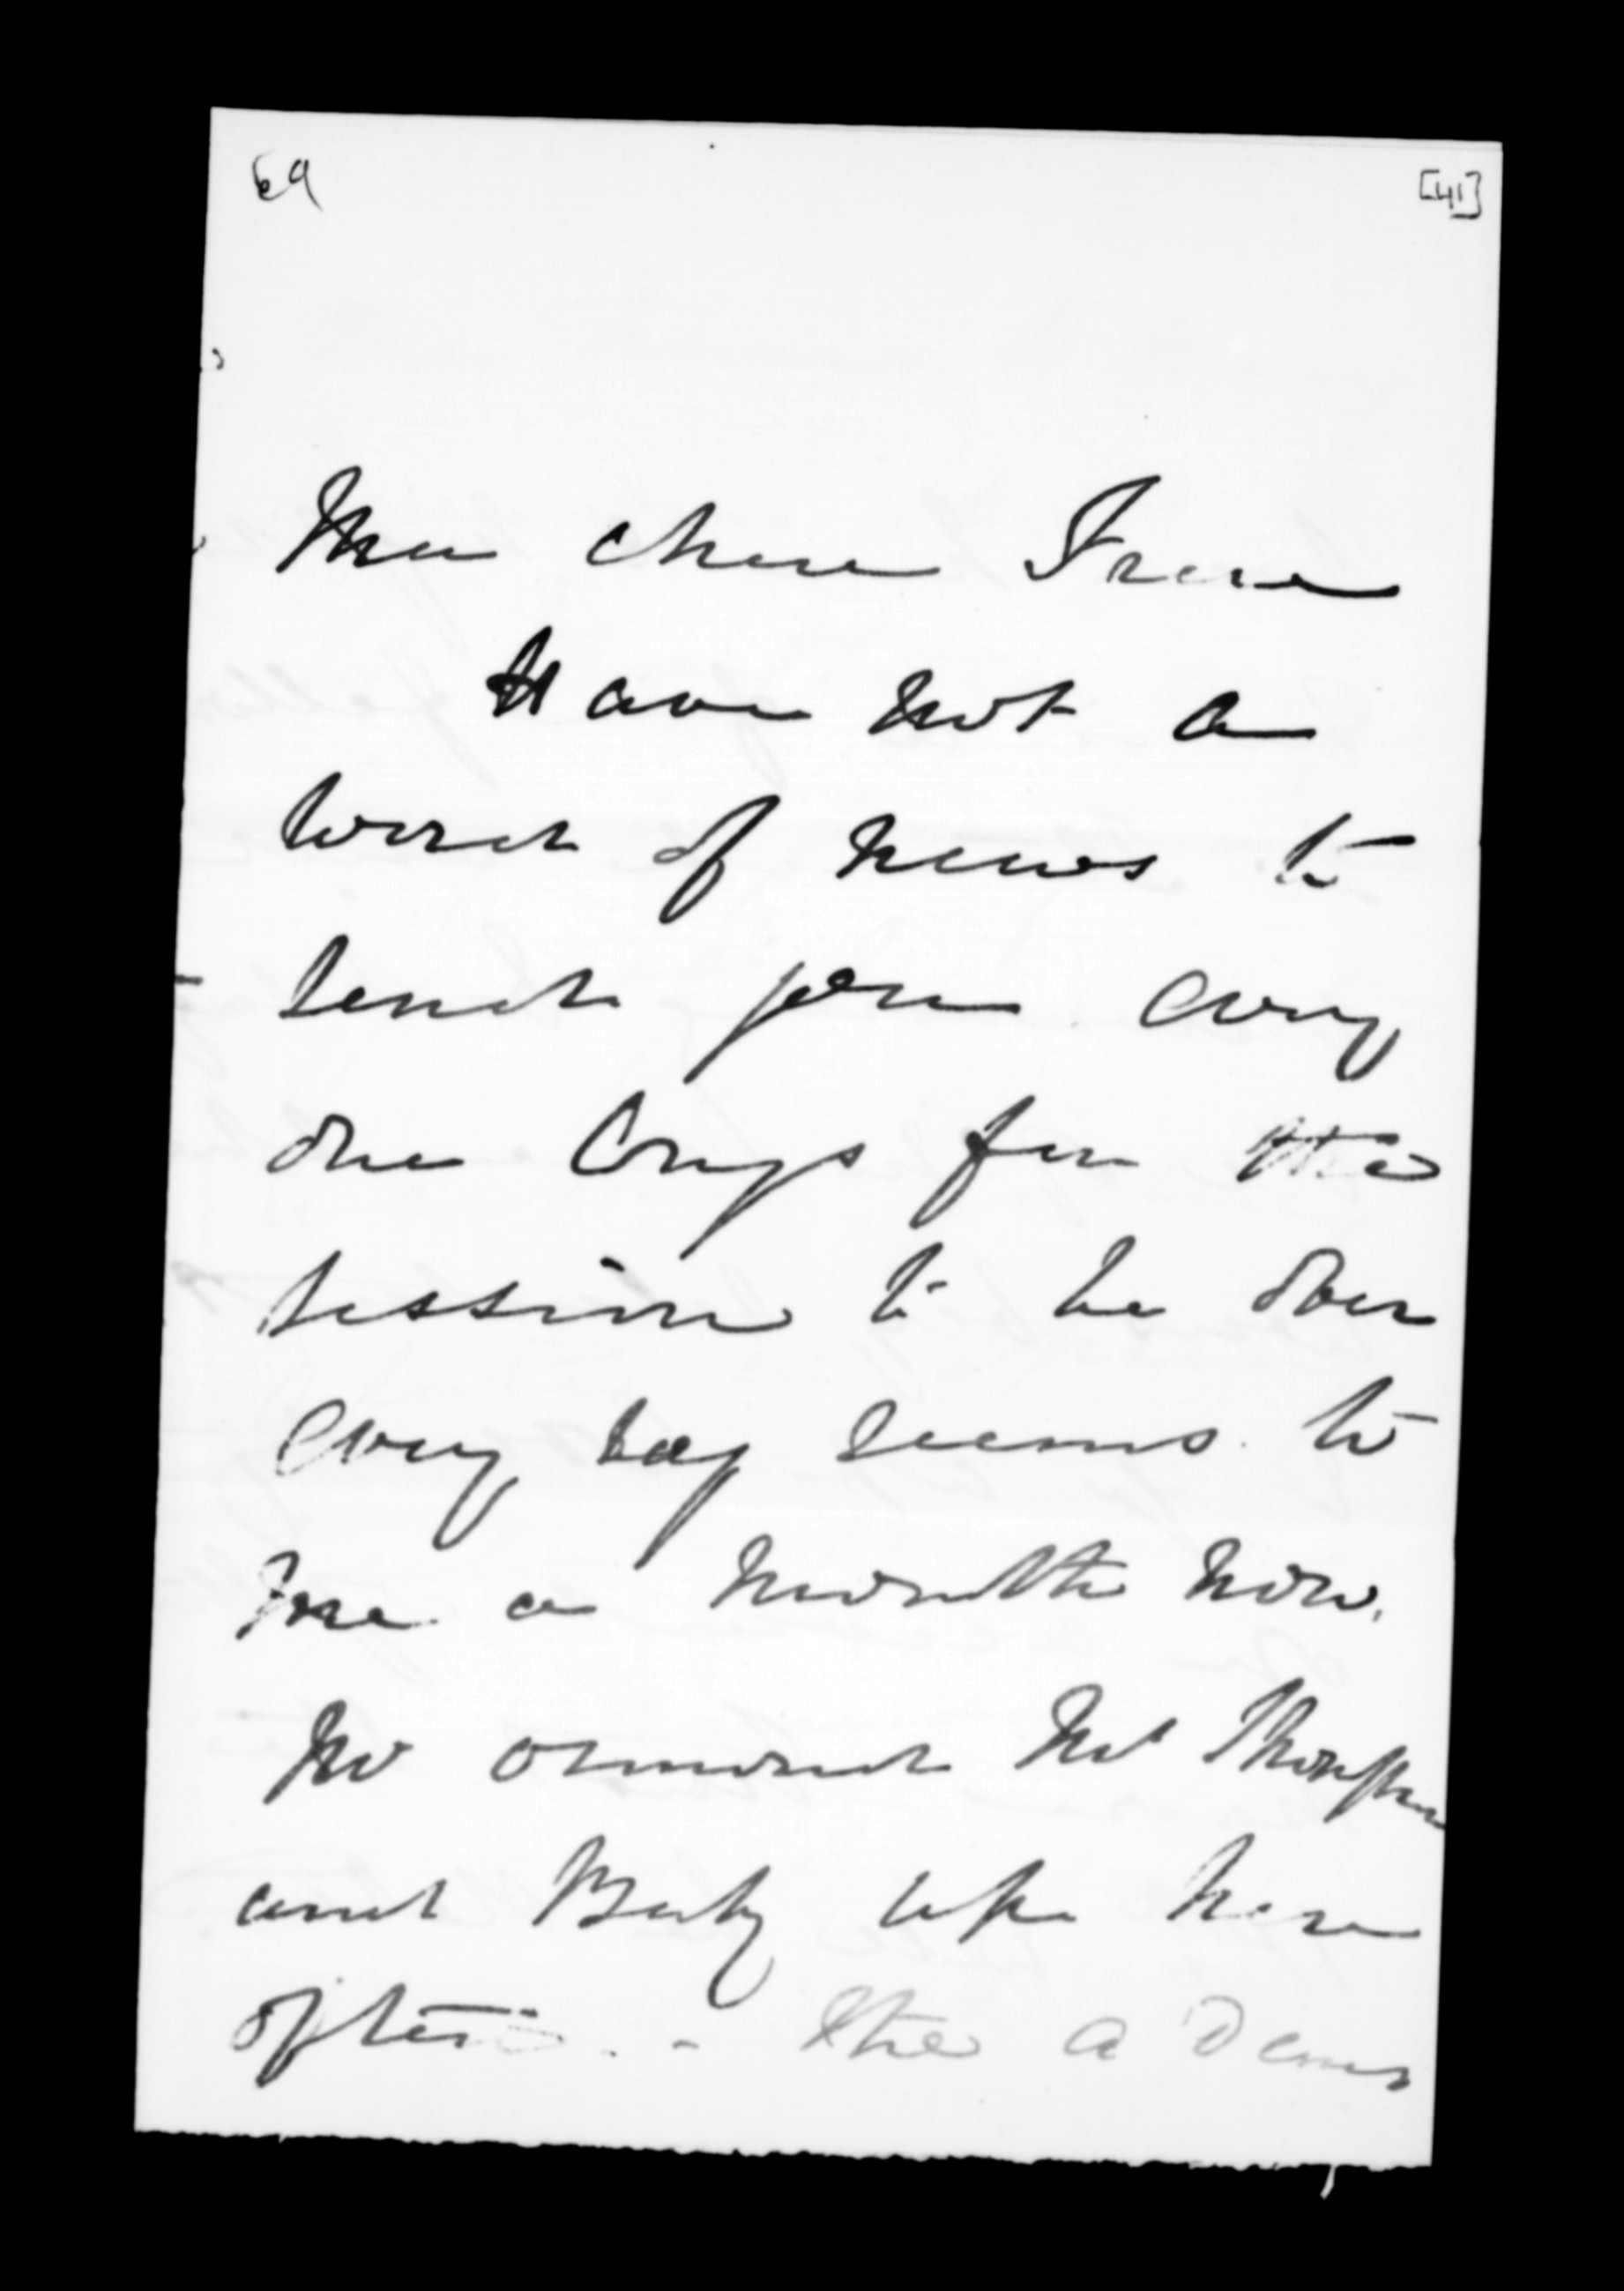 69
[41]
Ma chere Irene
Have not a
word of news to
send you every
one longs for the
session to be over
every day seems to
me a month now.
Mr Ormond Mrs Thompson
and Baby up here
often - The a Deans